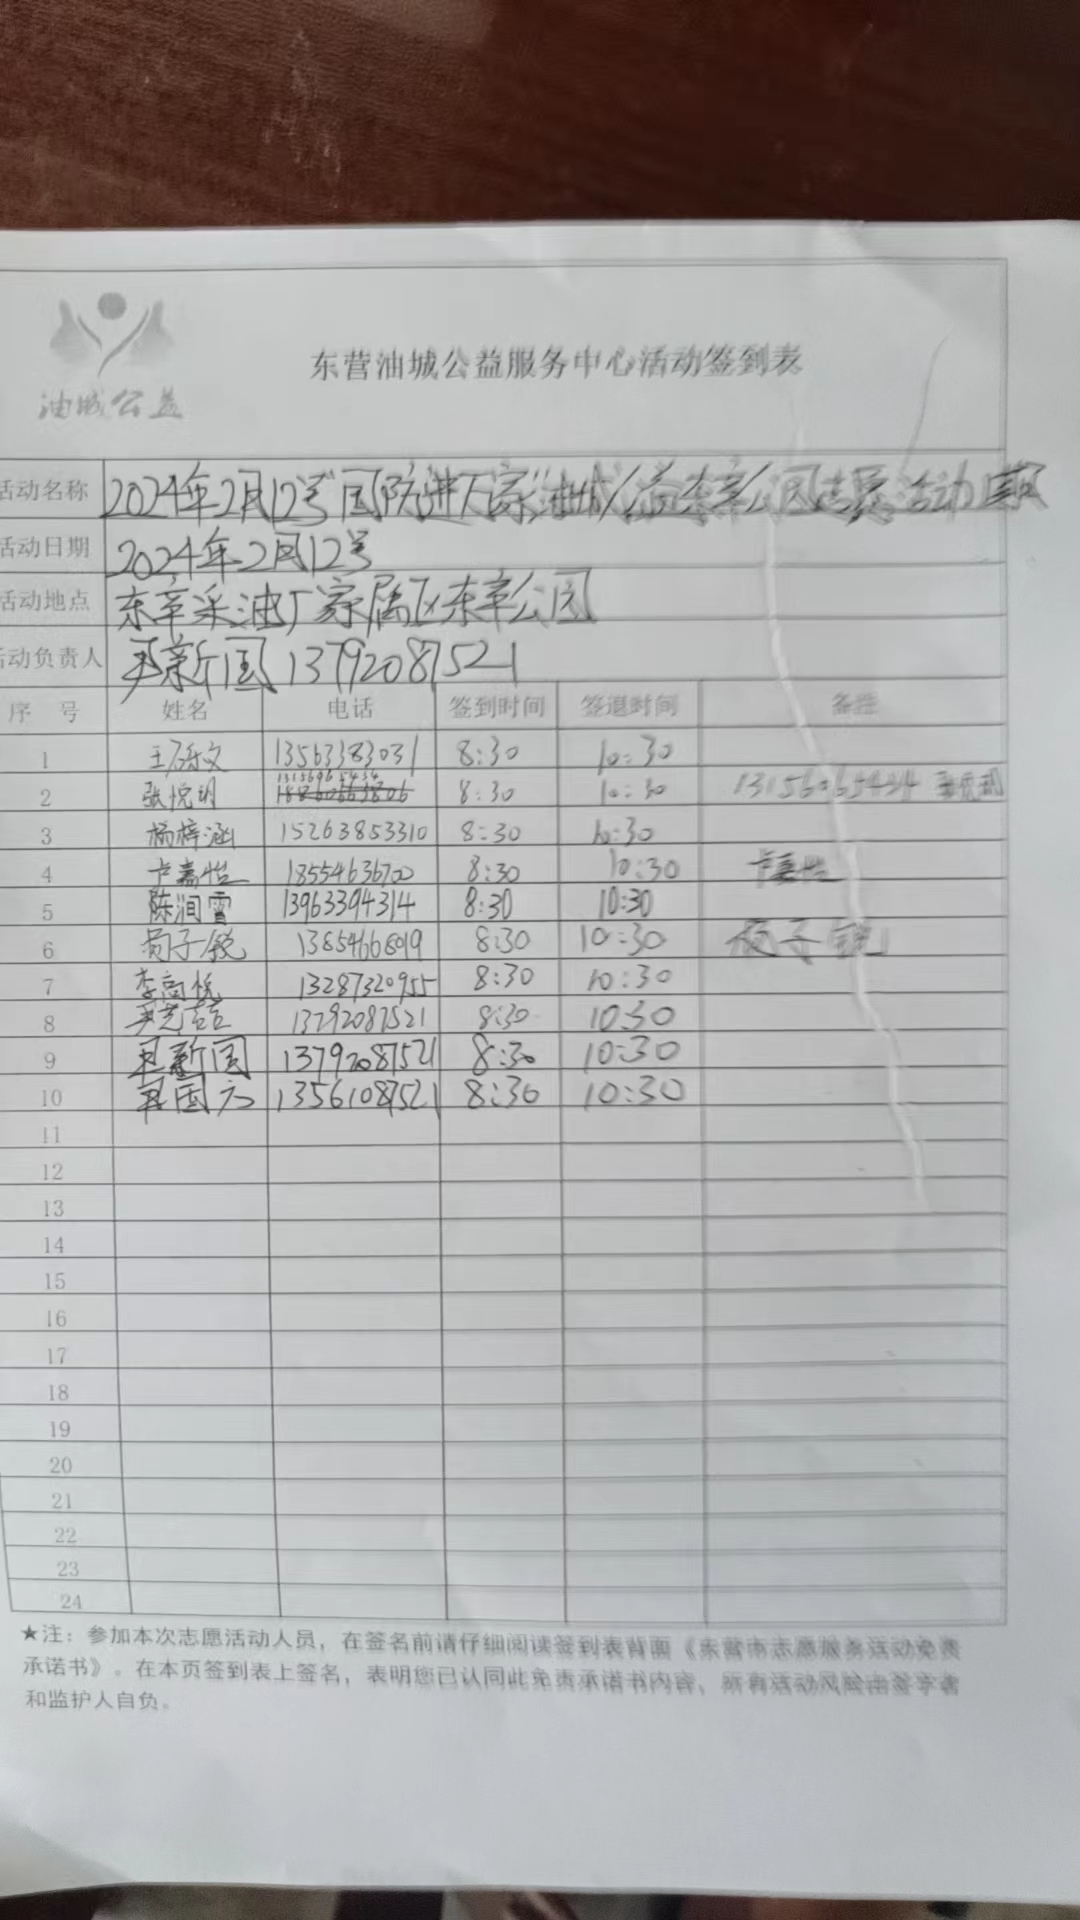 油城公益
东营油城公益服务中心活动签到表
活动名称 2024年2月12号国防进万家油城公益东辛公园志愿活动
活动日期 2024年2月12号
活动地点 东辛采油厂家属区东辛公园
活动负责人 新国 13792087521
序号 姓名 电话 签到时间 签退时间 备注
1 王砾文 13563383031 8:30 10:30
2 张悦明 13156965434 8:30 10:30
3 杨梓涵 15263853310 8:30 10:30
4 卡嘉怡 18554636700 8:30 10:30 卡嘉怡
5 陈润雪 13963394314 8:30 10:30
6 荀子锐 13854668019 8:30 10:30 子锐
7 李尚悦 13287320955 8:30 10:30
8 13792087521 8:30 10:30
9 新国 13792087521 8:30 10:30
10 国 13561087521 8:30 10:30
11
12
13
14
15
16
17
18
19
20
21
22
23
24
★注：参加本次志愿活动人员，在签名前请仔细阅读签到表背面《东营市志愿服务活动免责
承诺书》。在本页签到表上签名，表明您已认同此免责承诺书内容，所有活动风险由签字者
和监护人自负。